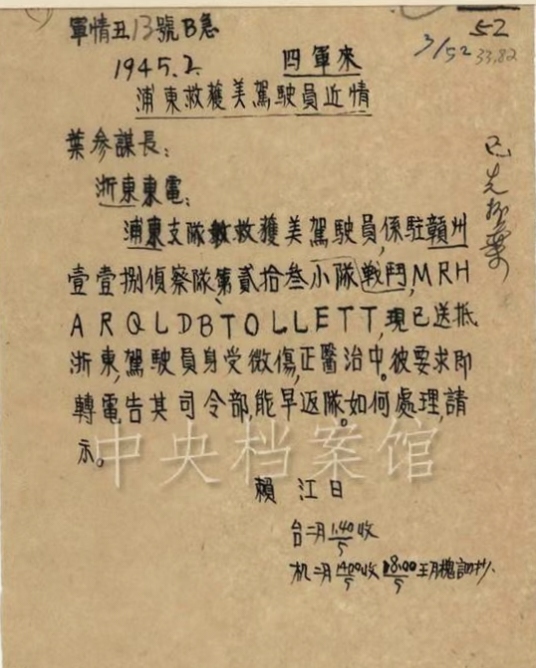 軍情丑13號B急
52
3/52 33,82
1945.2. 四軍來
浦東救獲美駕駛員近情
葉參謀長:
浙東東電:
浦東支隊救獲美駕駛員,係駐贛州
壹壹捌偵察隊第貳拾叁小隊戰鬥,MRH
ARQLDBTOLLETT,現已送抵
浙東,駕駛員身受微傷,正醫治中。彼要求即
轉電告其司令部,能早返隊。如何處理,請
示。
賴 江日
台二月1.40/5收
机二月1400/5收 18.00/5
已先抄葉
中央档案馆